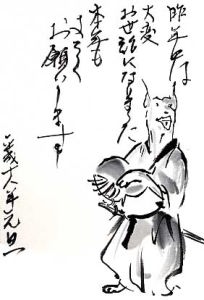 昨年は
大変
お世話になりました
本年も
よろしく
お願いします
十八年元旦